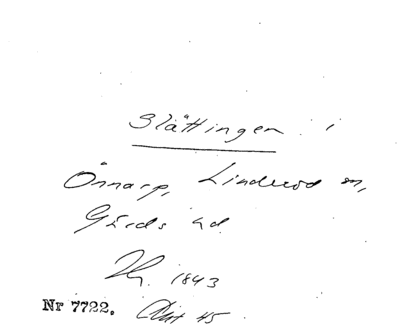 Slättingen i
Önnarp, Linderöd sn,
Gärds hd.
1843
Nr 7722. Akt 45